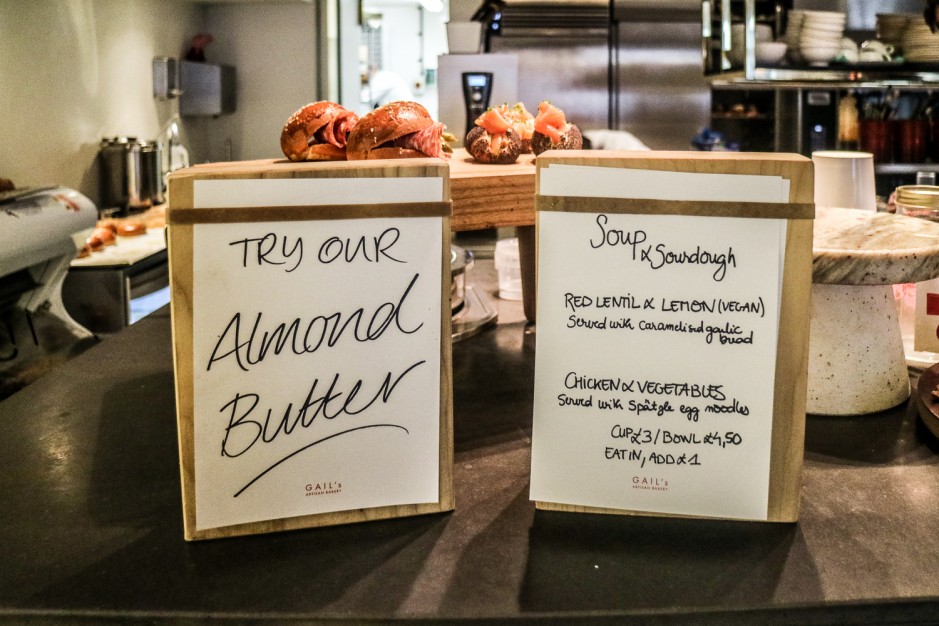 TRY OUR
Almond
Butter
GAIL's
ARTISAN BAKERY
Soup
& Sourdough
RED LENTIL & LEMON (VEGAN)
Served with caramelised garlic
bread
CHICKEN & VEGETABLES
Served with Spätzle egg noodles
CUP £3 / BOWL £4,50
EAT IN, ADD £1
GAIL's
ARTISAN BAKERY